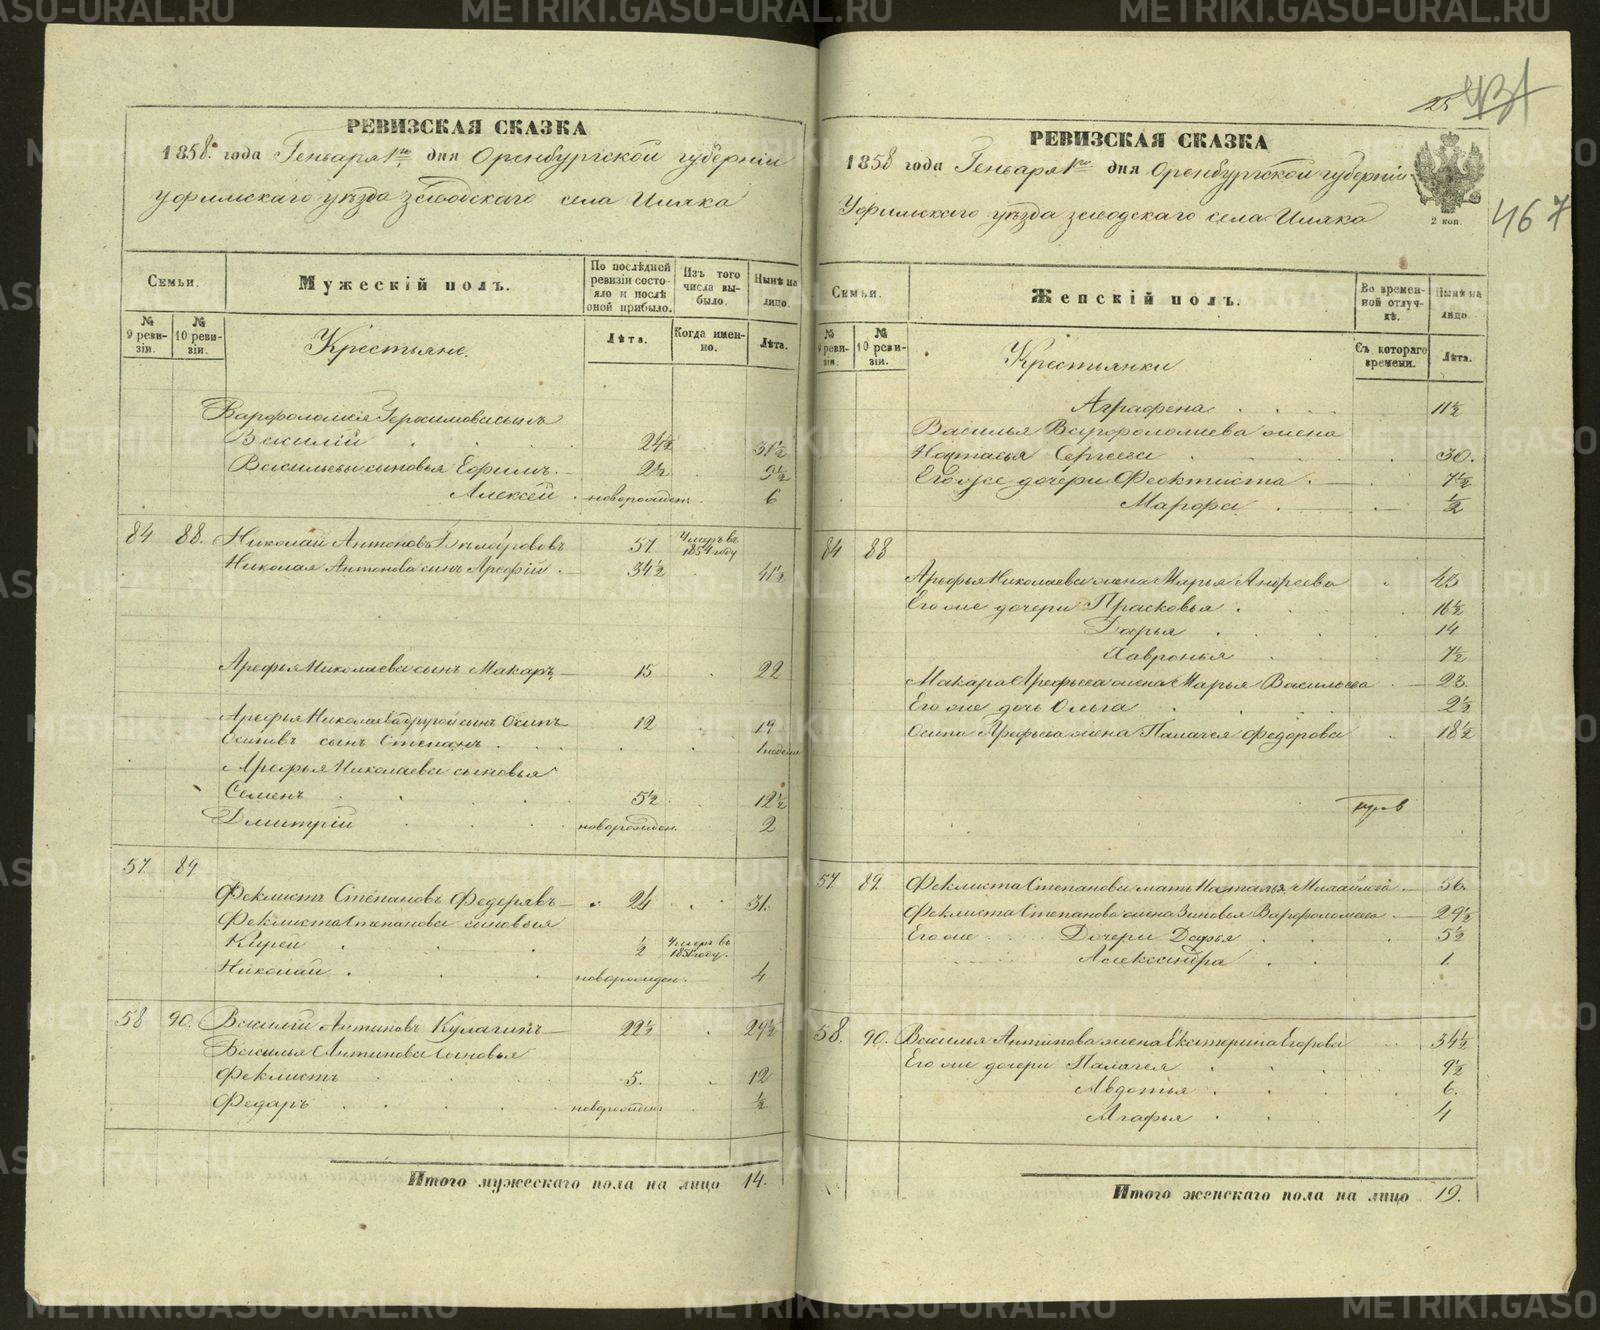 РЕВИЗСКАЯ СКАЗКА
1858 года Генваря 1го дня Оренбургской губернии
Уфимскаго уѣзда заводскаго села Илика
Семьи.
Мужескій полъ.
По послѣдней ревизіи состояло и послѣ оной прибыло.
Изъ того числа выбыло.
Нынѣ на лицо.
№ 9 ревизіи.
№ 10 ревизіи.
Крестьяне.
Лѣта.
Когда именно.
Лѣта.
Варфоломея Герасимова сынъ
Василій 24½ 31½
Васильевы сыновья Ефимъ 2½ 9½
Алексей новорожден. 6
84 88. Николай Антоновъ 57 Умеръ въ 1854 году
Николая Антонова сынъ Арефій 34½ 41½
Арефья Николаева сынъ Макаръ 15 22
Арефья Николаева другой сынъ Осипъ 12 19
Осиповъ сынъ Степанъ 1 недели
Арефья Николаева сыновья
Семенъ 5½ 12½
Дмитрій новорожден. 2
57 89
Феклистъ Степановъ 24 31.
Феклиста Степанова сыновья
Кирей ½ Умеръ въ году.
Николай новорожден. 4
58 90. Василій Антиповъ Кулагинъ 22½ 29½
Василья Антипова сыновья
Феклистъ 5. 12
Федаръ новорожден ½
Итого мужескаго пола на лицо 14.
25
431
467
РЕВИЗСКАЯ СКАЗКА
1858 года Генваря 1го дня Оренбургской губерніи
Уфимскаго уѣзда заводскаго села Илика
2 коп.
Семьи.
Женскій полъ.
Во временной отлучкѣ.
Нынѣ на лицо
№ 9 ревизіи.
№ 10 ревизіи.
Крестьянки
Съ котораго времени.
Лѣта.
Аграфена 11½
Василья Варфоломеева жена
Настасья Сергеева 30.
Его же дочери Феоктиста 7½
Марфа ½
84 88
Арефья Николаева жена Марья Андреева 43
Его же дочери Прасковья 16½
Дарья 14
Хавронья 7½
Макара Арефьева жена Марья Васильева 23.
Его же дочь Ольга 2½
Осипа Арефьева жена Палагея Федорова 18½
57 89 Феклиста Степанова мать Наталья Михайлова 56.
Феклиста Степанова жена Зиновья Варфоломеева 29½
Его же Дочери Дарья 5½
Александра 1.
58. 90. Василья Антипова жена Екатерина Егорова 34½
Его же дочери Палагея 9½
Авдотья 6.
Агафья 4
Итого женскаго пола на лицо 19.
METRIKI.GASO-URAL.RU